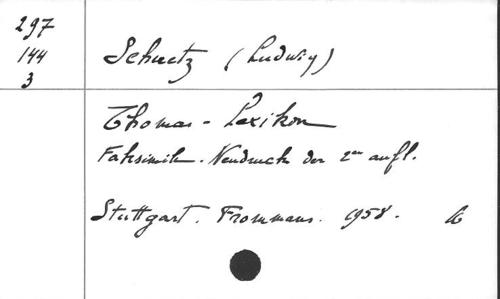 297
144
3
Schuetz (Ludwig)
Thomas - Lexikon
Faksimile - Neudruck der 2en aufl.
Stuttgart. Frommans. 1958.